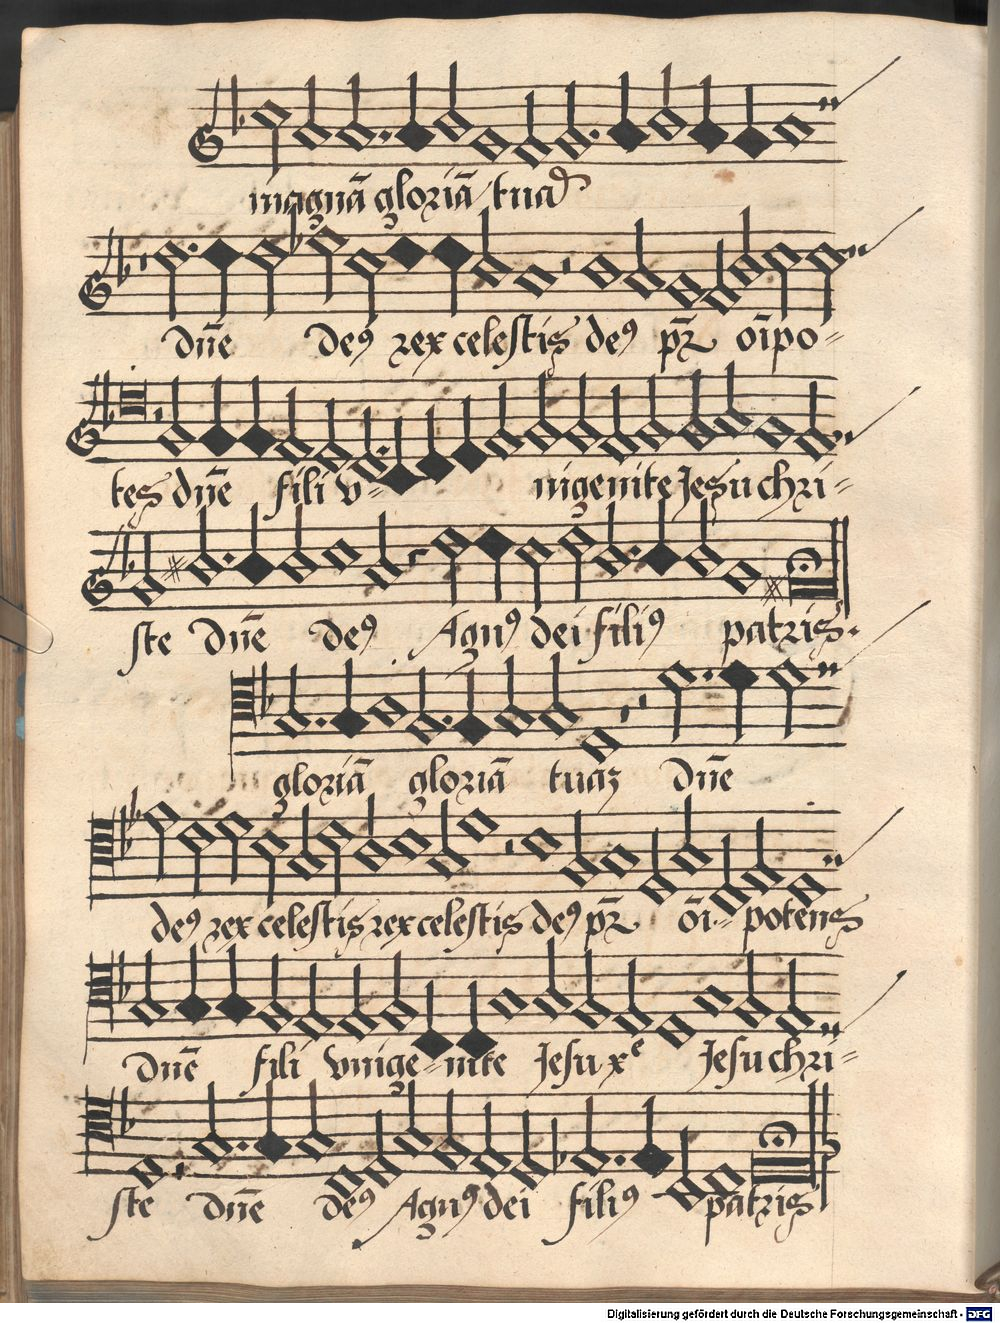 magnā gloriā tuaȝ
dn̄e deꝰ rex celestis deꝰ pr̄ oīpo-
tes dn̄e fili v- nigenite Jesu chri-
ste dn̄e deꝰ Agnꝰ dei filiꝰ patris.
gloriā gloriā tuaȝ dn̄e
deꝰ rex celestis rex celestis deꝰ pr̄ ōi- potens
dn̄e fili vnige-nite Jesu xᵉ Jesu chri-
ste dn̄e deꝰ Agnꝰ dei filiꝰ patris
Digitalisierung gefördert durch die Deutsche Forschungsgemeinschaft - DFG